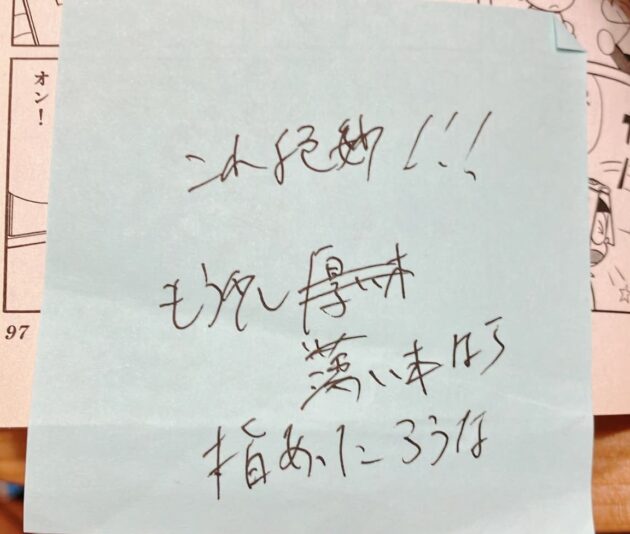 オン!
97
これ絶妙!!!
もう少し厚い本
薄い本なら
指あったろうな